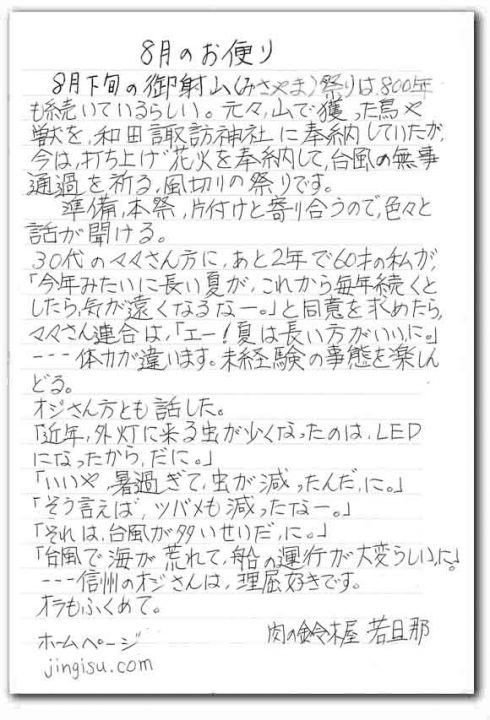 8月のお便り
8月下旬の御射山(みさやま)祭りは、800年
も続いているらしい。元々、山で獲った鳥や
獣を、和田諏訪神社に奉納していたが、
今は、打ち上げ花火を奉納して、台風の無事
通過を祈る、風切りの祭りです。
準備、本祭、片付けと寄り合うので、色々と
話が聞ける。
30代のママさん方に、あと2年で60才の私が、
「今年みたいに長い夏が、これから毎年続くと
したら、気が遠くなるなー。」と同意を求めたら、
ママさん連合は、「エー!夏は長い方がいい、に。」
---体力が違います。未経験の事態を楽しん
どる。
オジさん方とも話した。
「近年、外灯に来る虫が少くなったのは、LED
になったから、だに。」
「いいや、暑過ぎて、虫が減ったんだ、に。」
「そう言えば、ツバメも減ったなー。」
「それは、台風が多いせいだ、に。」
「台風で海が荒れて、船の運行が大変らしい、に。」
---信州のオジさんは、理屈好きです。
オラもふくめて。
肉の鈴木屋 若旦那
ホームページ
jingisu.com